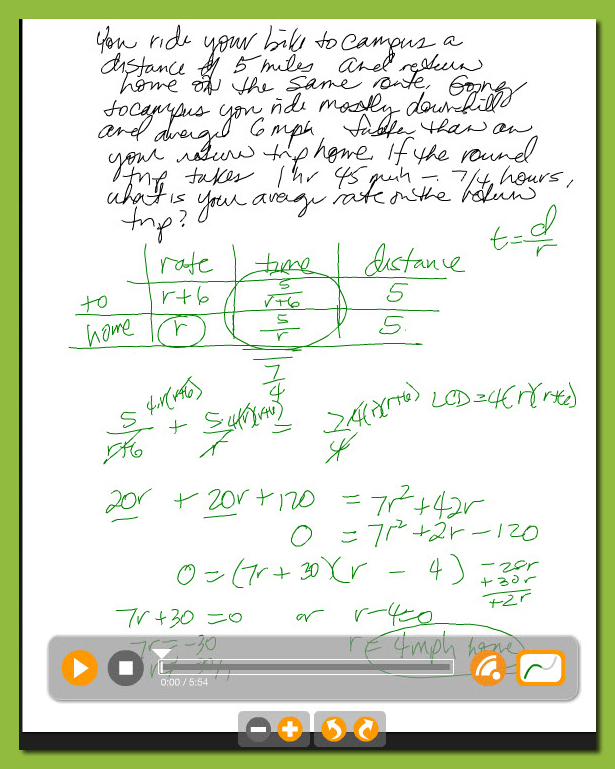 You ride your bike to campus a
distance of 5 miles and return
home on the same route. Going
to campus you ride mostly downhill
and average 6 mph faster than on
your return trip home. If the round
trip takes 1 hr 45 min - 7/4 hours,
what is your average rate on the return
trip?
t = d/r
rate time distance
to r+6 5/r+6 5
home r 5/r 5.
7/4
5/r+6 4r(r+6) + 5/r 4(r)(r+6) = 7/4 4(r)(r+6) LCD = 4(r)(r+6)
20r + 20r + 120 = 7r² + 42r
0 = 7r² + 2r - 120
0 = (7r + 30)(r - 4)
-28r
+30r
+2r
7r + 30 = 0 or r - 4 = 0
7r = -30 r = 4 mph home
0:00 / 5:54